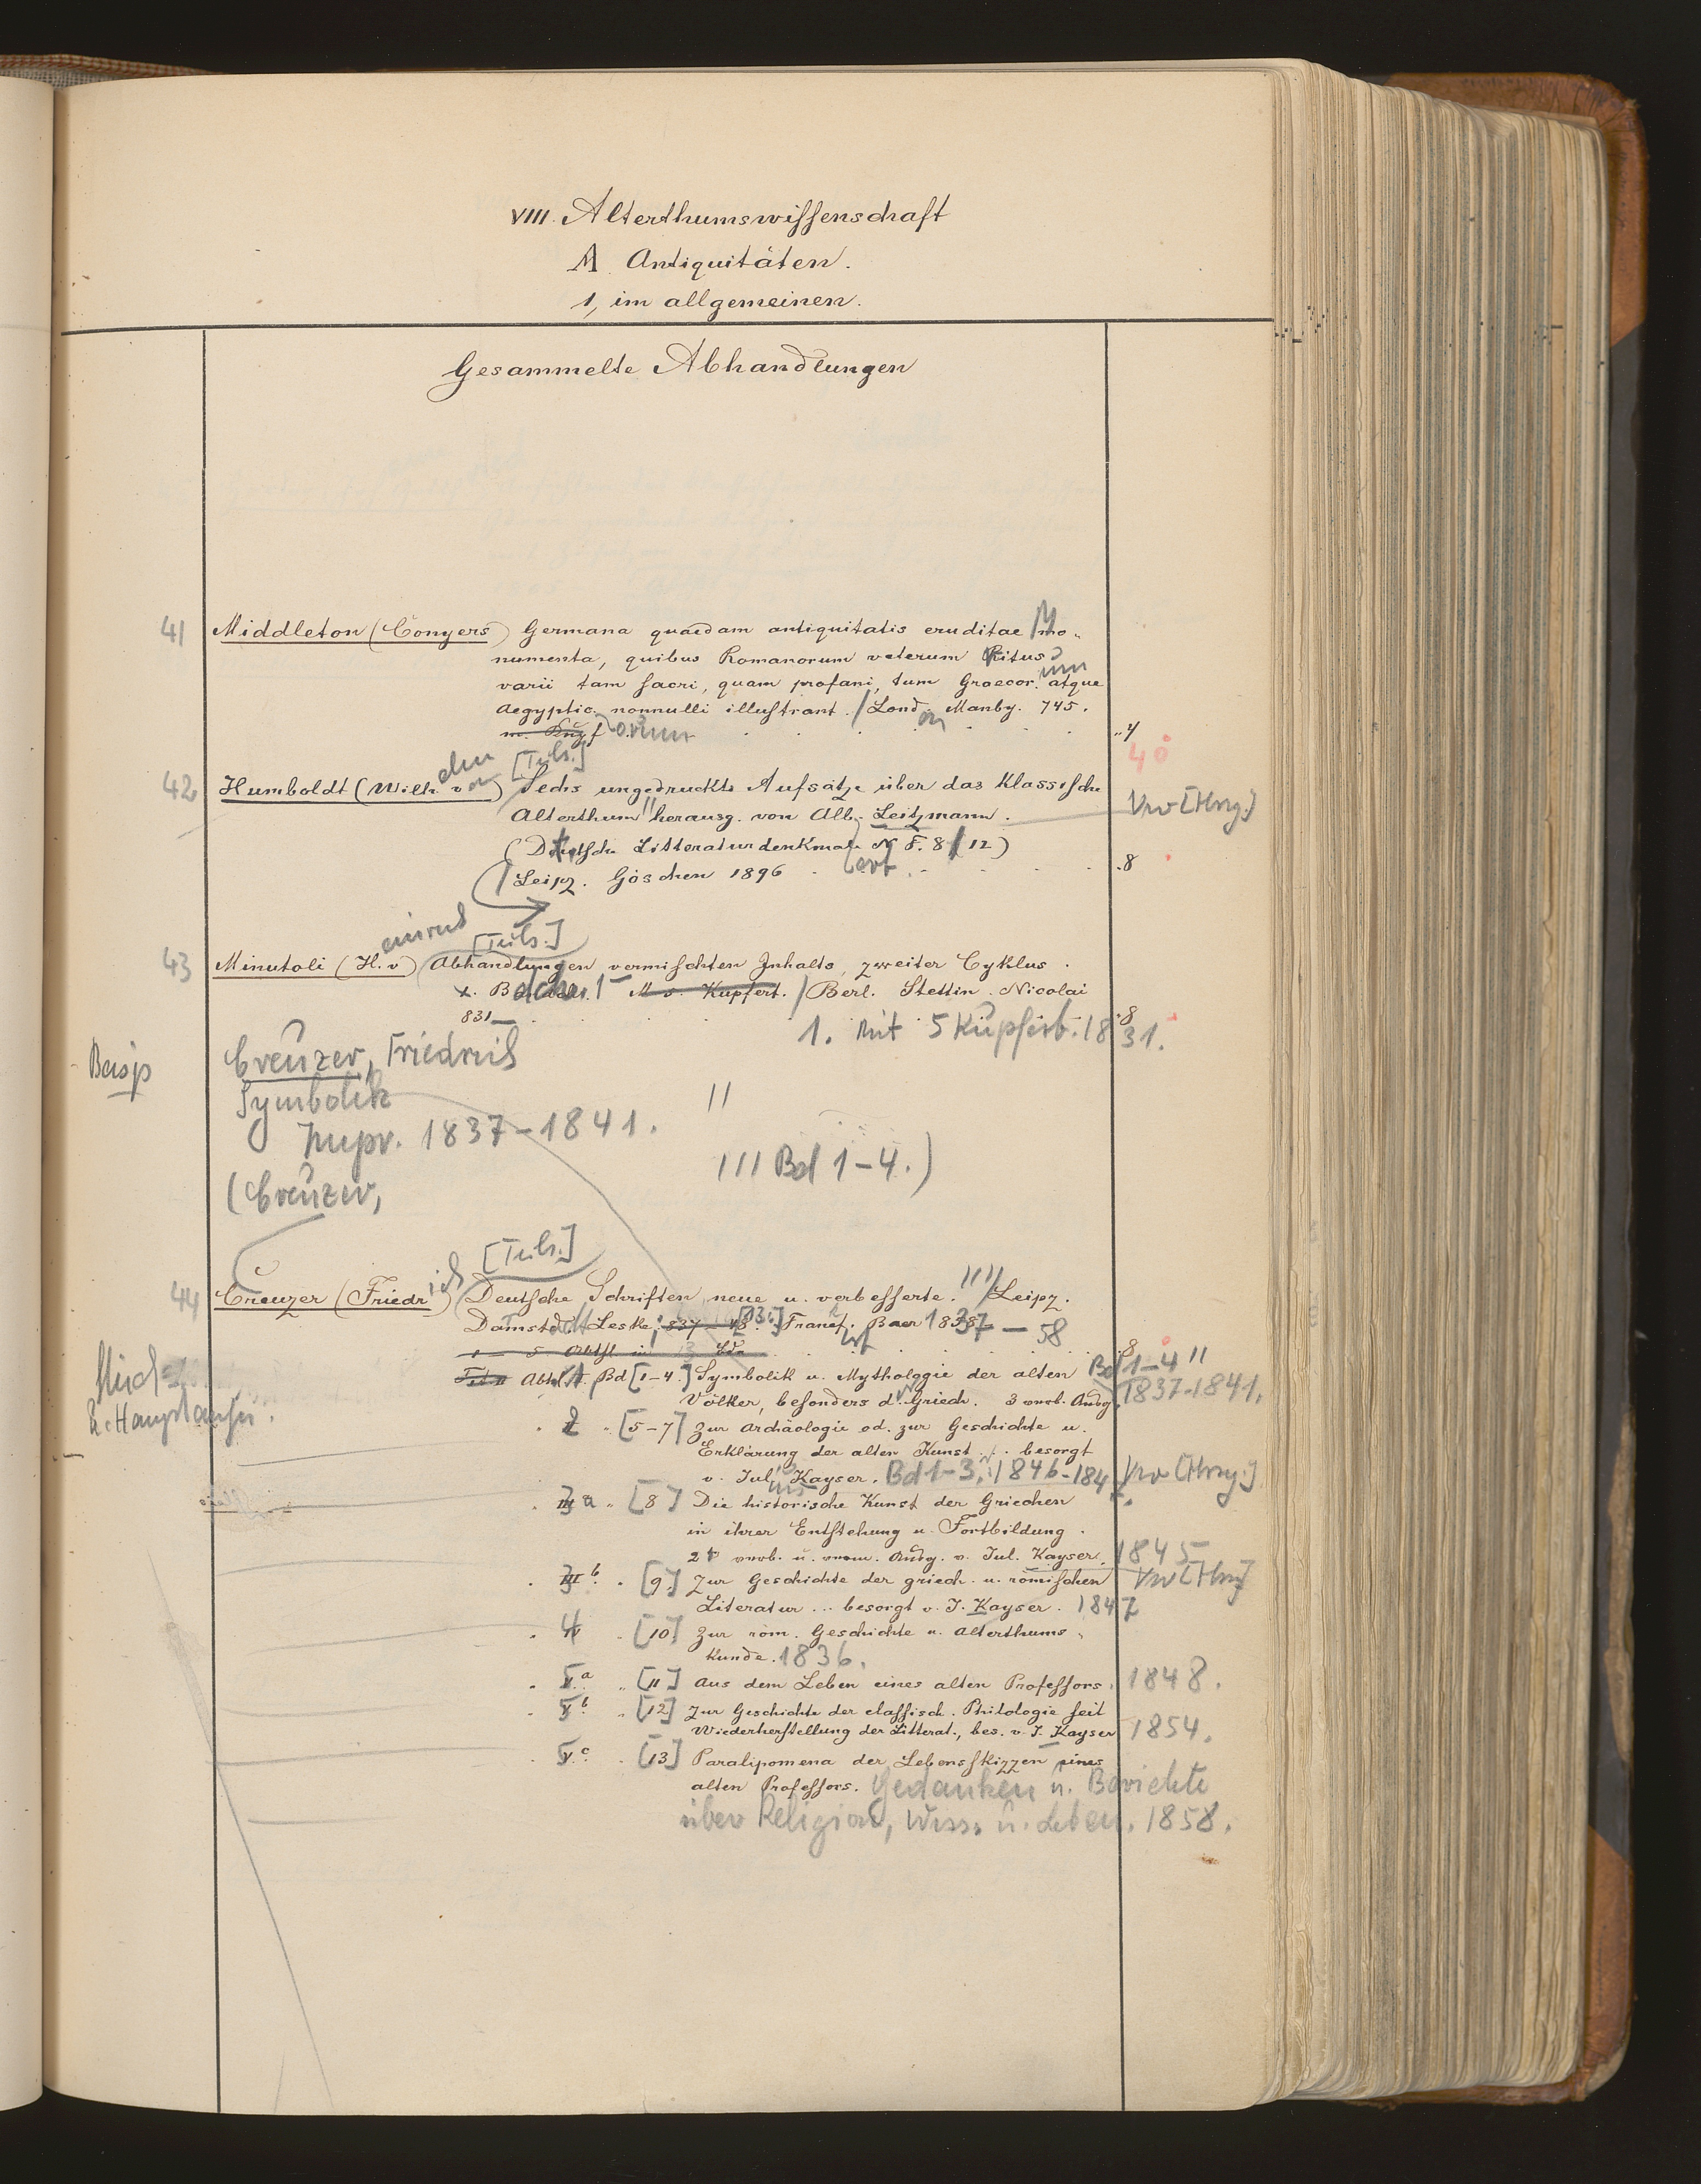 VIII. Alterthumswissenschaft
A Antiquitäten.
1, im allgemeinen.
Gesammelte Abhandlungen
41 Middleton (Conyers) Germana quaedam antiquitatis eruditae Mo-
numenta, quibus Romanorum veterum Ritus
varii tam sacri, quam profani, tum Graecor.um atque
Aegyptic.orum nonnulli illustrant. / London Manby. 745.
4
4°
[Teils.]
42 Humboldt (Wilhelm von) Sechs ungedruckte Aufsätze über das Klassische
Alterthum herausg. von Alb. Leitzmann.
Vrw [Hrsg.]
(Deutsche Litteraturdenkmale N F. 8/12)
Leipz. Göschen 1896 8
[Teils.]
43 Minutoli (H. v) Abhandlungen vermischten Inhalts, zweiter Cyklus.
Kupfert. / Berl. Stettin. Nicolai
831 8
1. Mit 5 Kupfert. 1831.
Creuzer, Friedrich
Symbolik
1837-1841. //
/// Bd 1-4.)
(Creuzer,
[Teils.]
44 Creuzer (Friedrich) Deutsche Schriften, neue u. verbesserte. //// Leipz.
Leske, 837-48. Baer 1837-58
8
Bd [1-4.] Symbolik u. Mythologie der alten Bd 1-4 //
Völker, besonders d. Griech. 3 verb. Ausg. 1837-1841.
2 [5-7] Zur Archäologie od. zur Geschichte u.
Erklärung der alten Kunst. besorgt
v. Jul. Kayser. Bd 1-3. 1846-184 Vrw [Hrsg.]
3 a [8] Die historische Kunst der Griechen
in ihrer Entstehung u. Fortbildung.
2t verb. u. verm. Ausg. v. Jul. Kayser. 1845
3 b. [9.] Zur Geschichte der griech. u. römischen Vrw [Hrsg]
Literatur ... besorgt v. J. Kayser. 1847
4 [10] Zur röm. Geschichte u. Alterthums-
kunde. 1836.
5 a [11] Aus dem Leben eines alten Professors. 1848.
5 b. [12] Zur Geschichte der classisch. Philologie seit
Wiederherstellung der Litterat., bes. v. J. Kayser 1854.
5 c. [13] Paralipomena der Lebensskizzen eines
alten Professors. Gedanken u. Berichte
über Religion, Wiss. u. Leben. 1858.